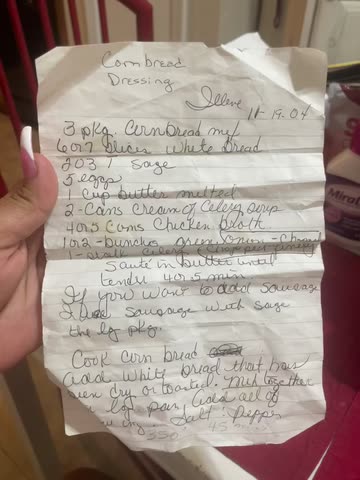 Cornbread
Dressing
Ilene
11-19-04
3 pkg. Cornbread mix
6 or 7 slices white bread
2 or 3 T Sage
5 eggs
1 cup butter melted
2 - Cans Cream of Celery Soup
4 or 5 Cans Chicken Broth
1 or 2 - bunches green onion - Chop
1 - stalk celery
Sauté in butter until
tender 4 or 5 min
If you want to add sausage
I use sausage with sage
the lg pkg.
Cook Corn bread
add white bread that has
been dry or toasted. Mix together
in lg pan add all of
ing. Salt & Pepper
350° 45 min
Mirol